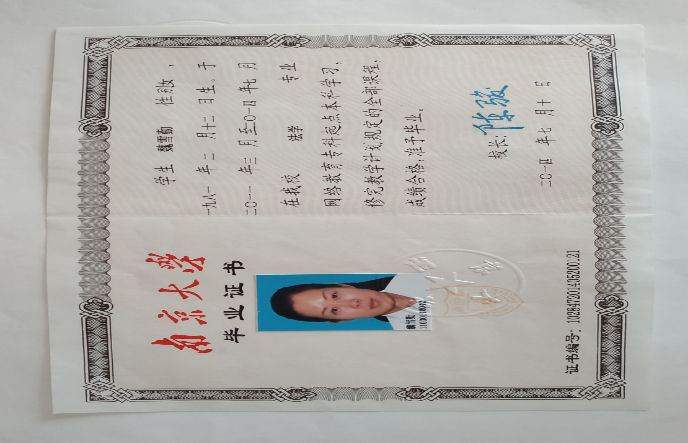 南京大学
毕业证书
证书编号:
学生 魏雪勤 性别女,
一九八一年二月十二日生。于
二〇一一年三月至二〇一四年七月
在我校 法学 专业
网络教育专科起点本科学习,
修完教学计划规定的全部课程,
成绩合格,准予毕业。
校长: 陈骏
二〇一四年七月十日